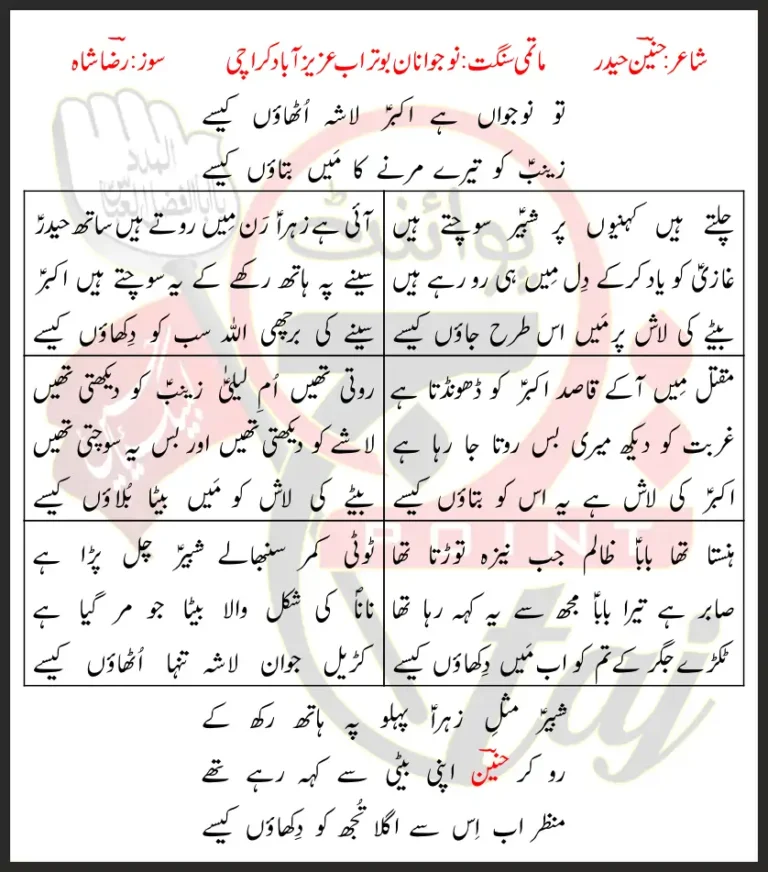 شاعر: حنین حیدر ماتمی سنگت: نوجوانان بوتراب عزیز آباد کراچی سوز: رضا شاہ
تو نوجواں ہے اکبرؑ لاشہ اُٹھاؤں کیسے
زینبؑ کو تیرے مرنے کا مَیں بتاؤں کیسے
چلتے ہیں کہنیوں پر شبیرؑ سوچتے ہیں
غازیؑ کو یاد کرکے دِل مِیں ہی رو رہے ہیں
بیٹے کی لاش پر مَیں اس طرح جاؤں کیسے
آئی ہے زہراؑ رَن مِیں روتے ہیں ساتھ حیدرؑ
سینے پہ ہاتھ رکھے کے یہ سوچتے ہیں اکبرؑ
سینے کی برچھی اللہ سب کو دِکھاؤں کیسے
مقتل مِیں آکے قاصد اکبرؑ کو ڈھونڈتا ہے
غربت کو دیکھ میری بس روتا جا رہا ہے
اکبرؑ کی لاش ہے یہ اس کو بتاؤں کیسے
روتی تھیں اُمِ لیلیٰؑ زینبؑ کو دیکھتی تھیں
لاشے کو دیکھتی تھیں اور بس یہ سوچتی تھیں
بیٹے کی لاش کو مَیں بیٹا بُلاؤں کیسے
ہنستا تھا باباؑ ظالم جب نیزہ توڑتا تھا
صابر ہے تیرا باباؑ مجھ سے یہ کہہ رہا تھا
ٹکڑے جگر کے تم کو اب مَیں دِکھاؤں کیسے
ٹوٹی کمر سنبھالے شبیرؑ چل پڑا ہے
ناناؐ کی شکل والا بیٹا جو مر گیا ہے
کڑیل جوان لاشہ تنہا اُٹھاؤں کیسے
شبیرؑ مثلِ زہراؑ پہلو پہ ہاتھ رکھ کے
رو کر حنین اپنی بیٹی سے کہہ رہے تھے
منظر اب اِس سے اگلا تُجھ کو دِکھاؤں کیسے
پوائنٹ
POINT
taj